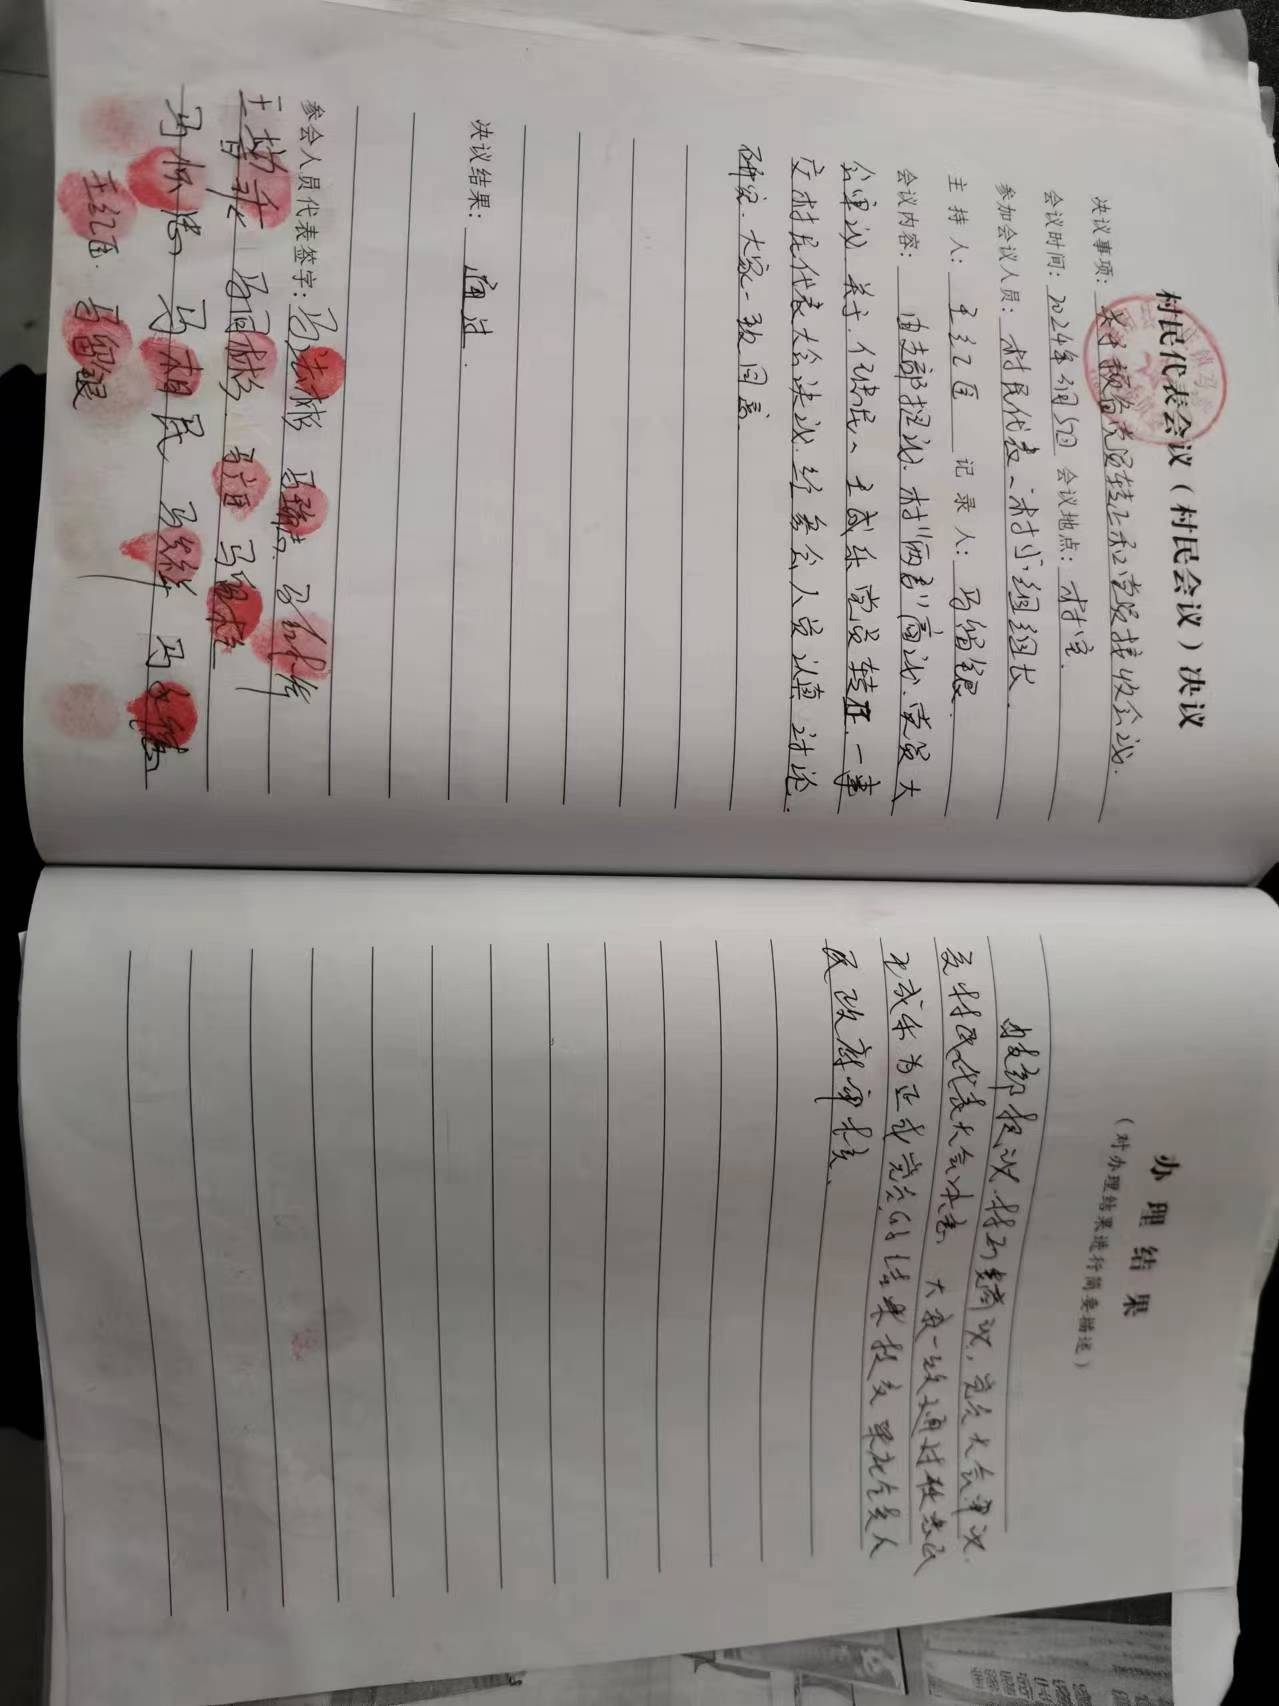 村民代表会议（村民会议）决议
决议事项：关于预备党员转正和党员接收会议.
会议时间：2024年 会议地点：村室.
参加会议人员：村民代表、村小组组长.
主持人：王红臣 记录人：马留银.
会议内容：由支部提议.村"两委"商议.党员大
会审议.关于. 王成乐党员转正.一事
交村民代表大会决议.经参会人员认真讨论.
研究.大家一致同意.
决议结果：通过.
参会人员代表签字：马志彬 马瑞 马
王 马同彬 马 马
马怀忠 马相民 马 马
王红臣. 马留银
办理结果
（对办理结果进行简要描述）
由支部提议.村两委商议，党员大会审议.
交村民代表大会决议 大家一致通过
王成乐为正式党员的结果提交 人
民政府审核.